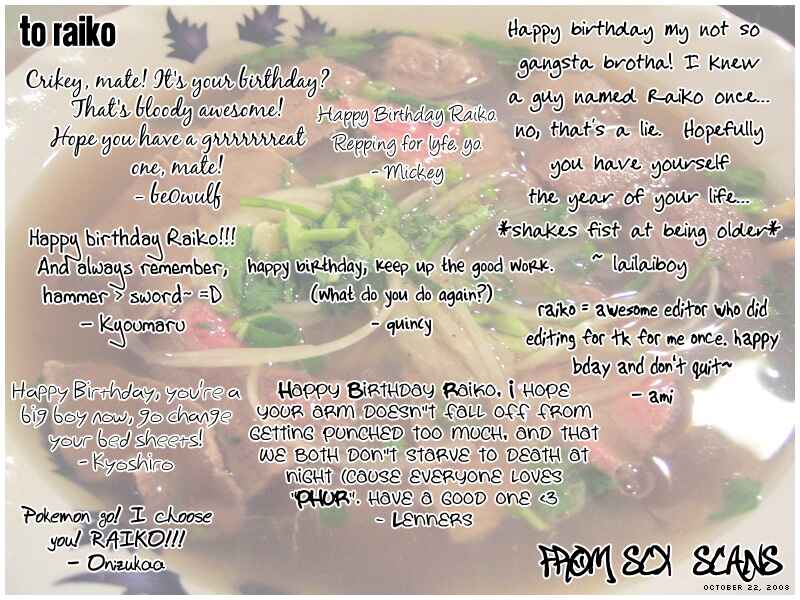 to raiko
Crikey, mate! It's your birthday?
That's bloody awesome!
Hope you have a grrrrrrreat
one, mate!
- be0wulf
Happy Birthday Raiko.
Repping for lyfe, yo.
- Mickey
Happy birthday my not so
gangsta brotha! I knew
a guy named Raiko once...
no, that's a lie. Hopefully
you have yourself
the year of your life...
*shakes fist at being older*
~ lailaiboy
Happy birthday Raiko!!!
And always remember,
hammer > sword~ =D
- Kyoumaru
happy birthday, keep up the good work.
(what do you do again?)
- quincy
raiko = awesome editor who did
editing for tk for me once. happy
bday and don't quit~
- ami
Happy Birthday, you're a
big boy now, go change
your bed sheets!
- Kyoshiro
Happy Birthday Raiko, i hope
your arm doesn"t fall off from
getting punched too much, and that
we both don"t starve to death at
night (cause everyone loves
"PHUR". Have a good one <3
- Lenners
Pokemon go! I choose
you! RAIKO!!!
- Onizukaa
FROM SCI SCANS
OCTOBER 22, 2008